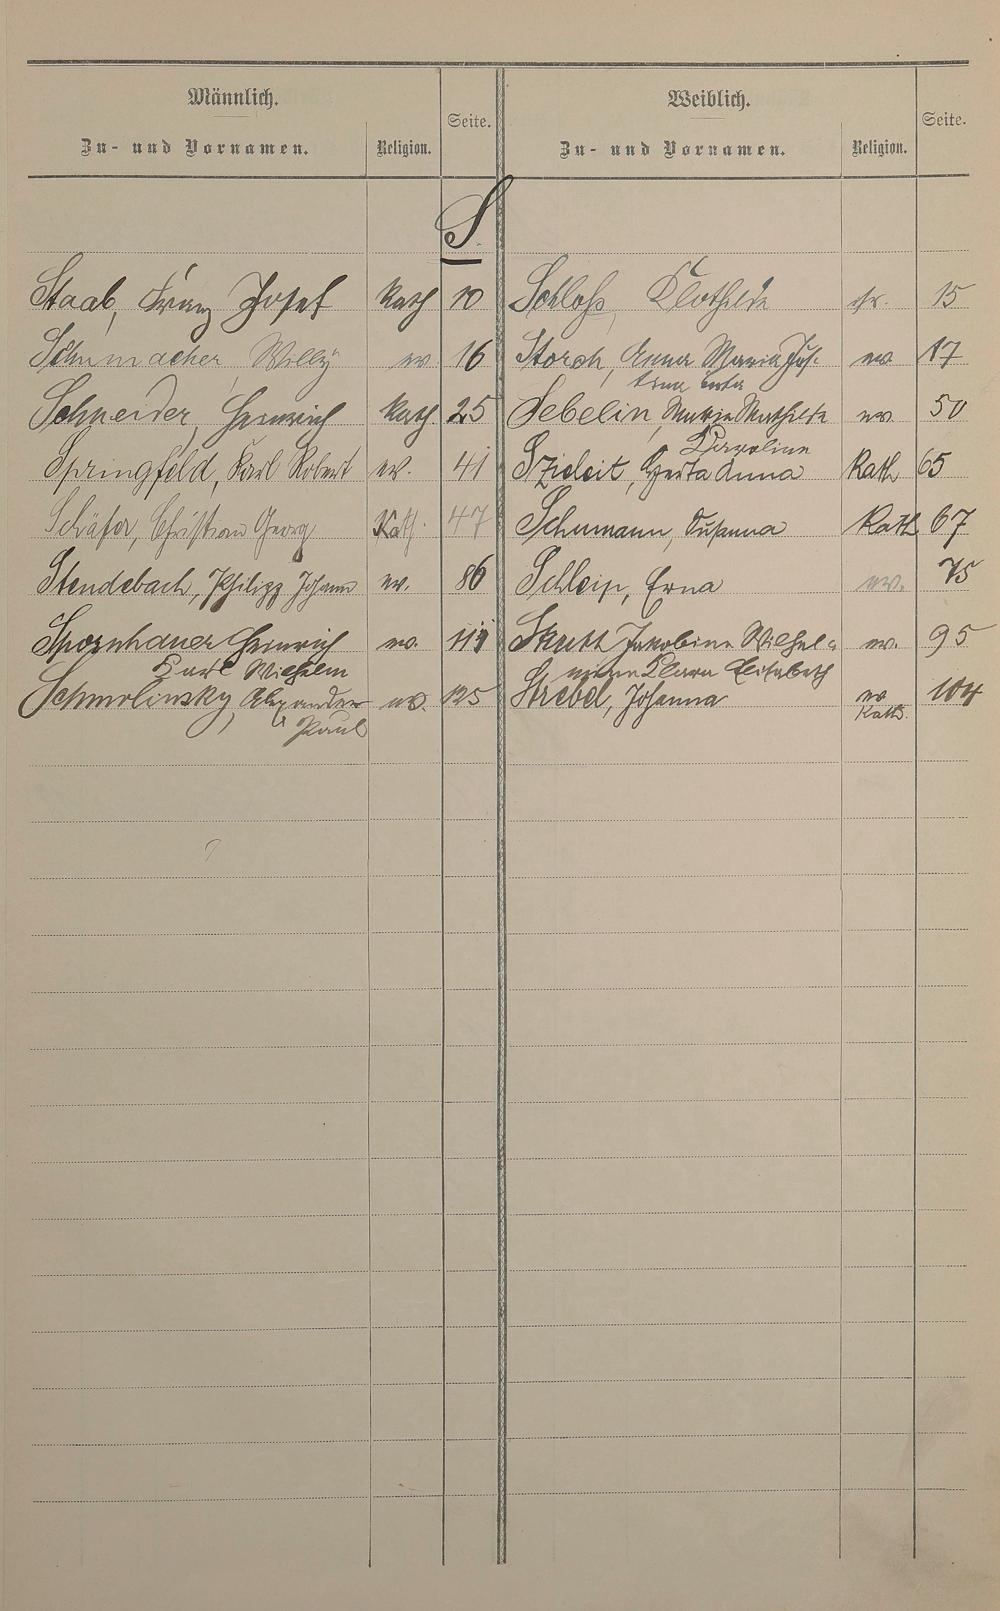 Männlich.
Zu- und Vornamen. Religion. Seite.
Weiblich.
Zu- und Vornamen. Religion. Seite.
S.
Staab, Franz Josef Kath 10
Schumacher, Willy ev 16
Schneider, Heinrich Kath. 25
Springfeld, Karl Robert ev. 41
Schäfer, Christian Georg Kath. 47
Stendebach, Philipp Johann ev. 86
Spornhauer Heinrich ev.
Karl Wilhelm
Schmolinsky, Alexander ev. 125
Paul
Schloß, Klothilde isr. 15
Storch, Anna Maria ev 17
Berta
Sebelin, Marie Mathilde ev 50
Karoline
Szieleit, Gerta Anna Kath 65
Schumann, Susanna Kath 67
Schleip, Erna ev. 75
Jakobine Wilhel- ev. 95
mine Klara Elisabeth
Strebel, Johanna ev 104
Kath.